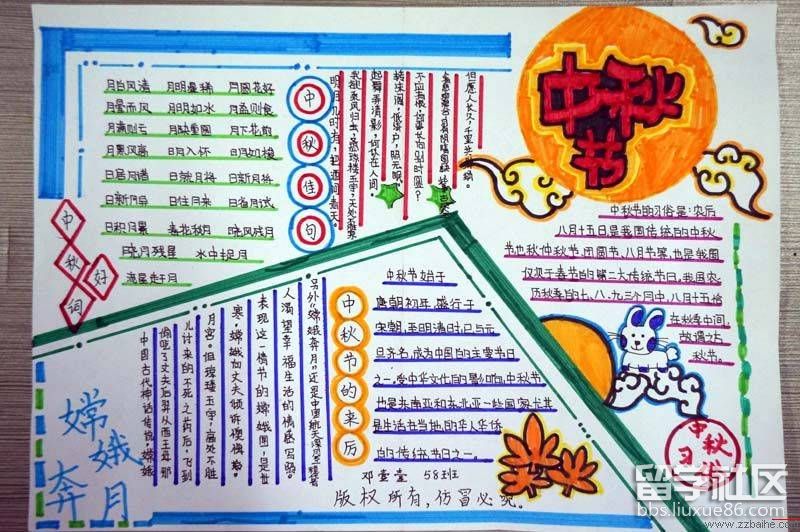 中秋节
中秋好词
月白风清 月明星稀 月圆花好
月晕而风 月明如水 月盈则食
月满则亏 月缺重圆 月下花前
月黑风高 明月入怀 日月如梭
日居月诸 日就月将 日新月将
日新月异 日往月来 日省月试
日积月累 春花秋月 晓风残月
晓月残星 水中捉月
流星赶月
中秋佳句
明月几时有，把酒问青天。
我欲乘风归去，
起舞弄清影，何似在人间。
转朱阁，低绮户，照无眠。
不应有恨，何事长向别时圆？
但愿人长久，千里共婵娟。
中秋节的习俗是：农历
八月十五日是我国传统的中秋
节也称仲秋节、团圆节、八月节等，也是我国
仅次于春节的第二大传统节日，我国农
历称秋季的七、八、九三个月中，八月十五恰
在秋季中间
故谓之中
秋节。
中秋习俗
中秋节的来历
中秋节始于
唐朝初年，盛行于
宋朝，至明清时已与元
旦齐名，成为中国的主要节日
之一。受中华文化的影响，中秋节
也是东南亚和东北亚一些国家尤其
是生活在当地的华人华侨
的传统节日之一。
嫦娥奔月
中国古代神话传说，嫦娥
偷吃了丈夫后羿从西王母那
儿讨来的不死之药后，飞到
月宫。但琼楼玉宇，高处不胜
寒，嫦娥向丈夫倾诉懊悔。
表现这一情节的嫦娥图，是世
人渴望幸福生活的情感写照。
另外“嫦娥奔月”还是中国航天
58班
版权所有，仿冒必究。
留学社区
bbs.liuxue86.com
www.zzbaihe.com